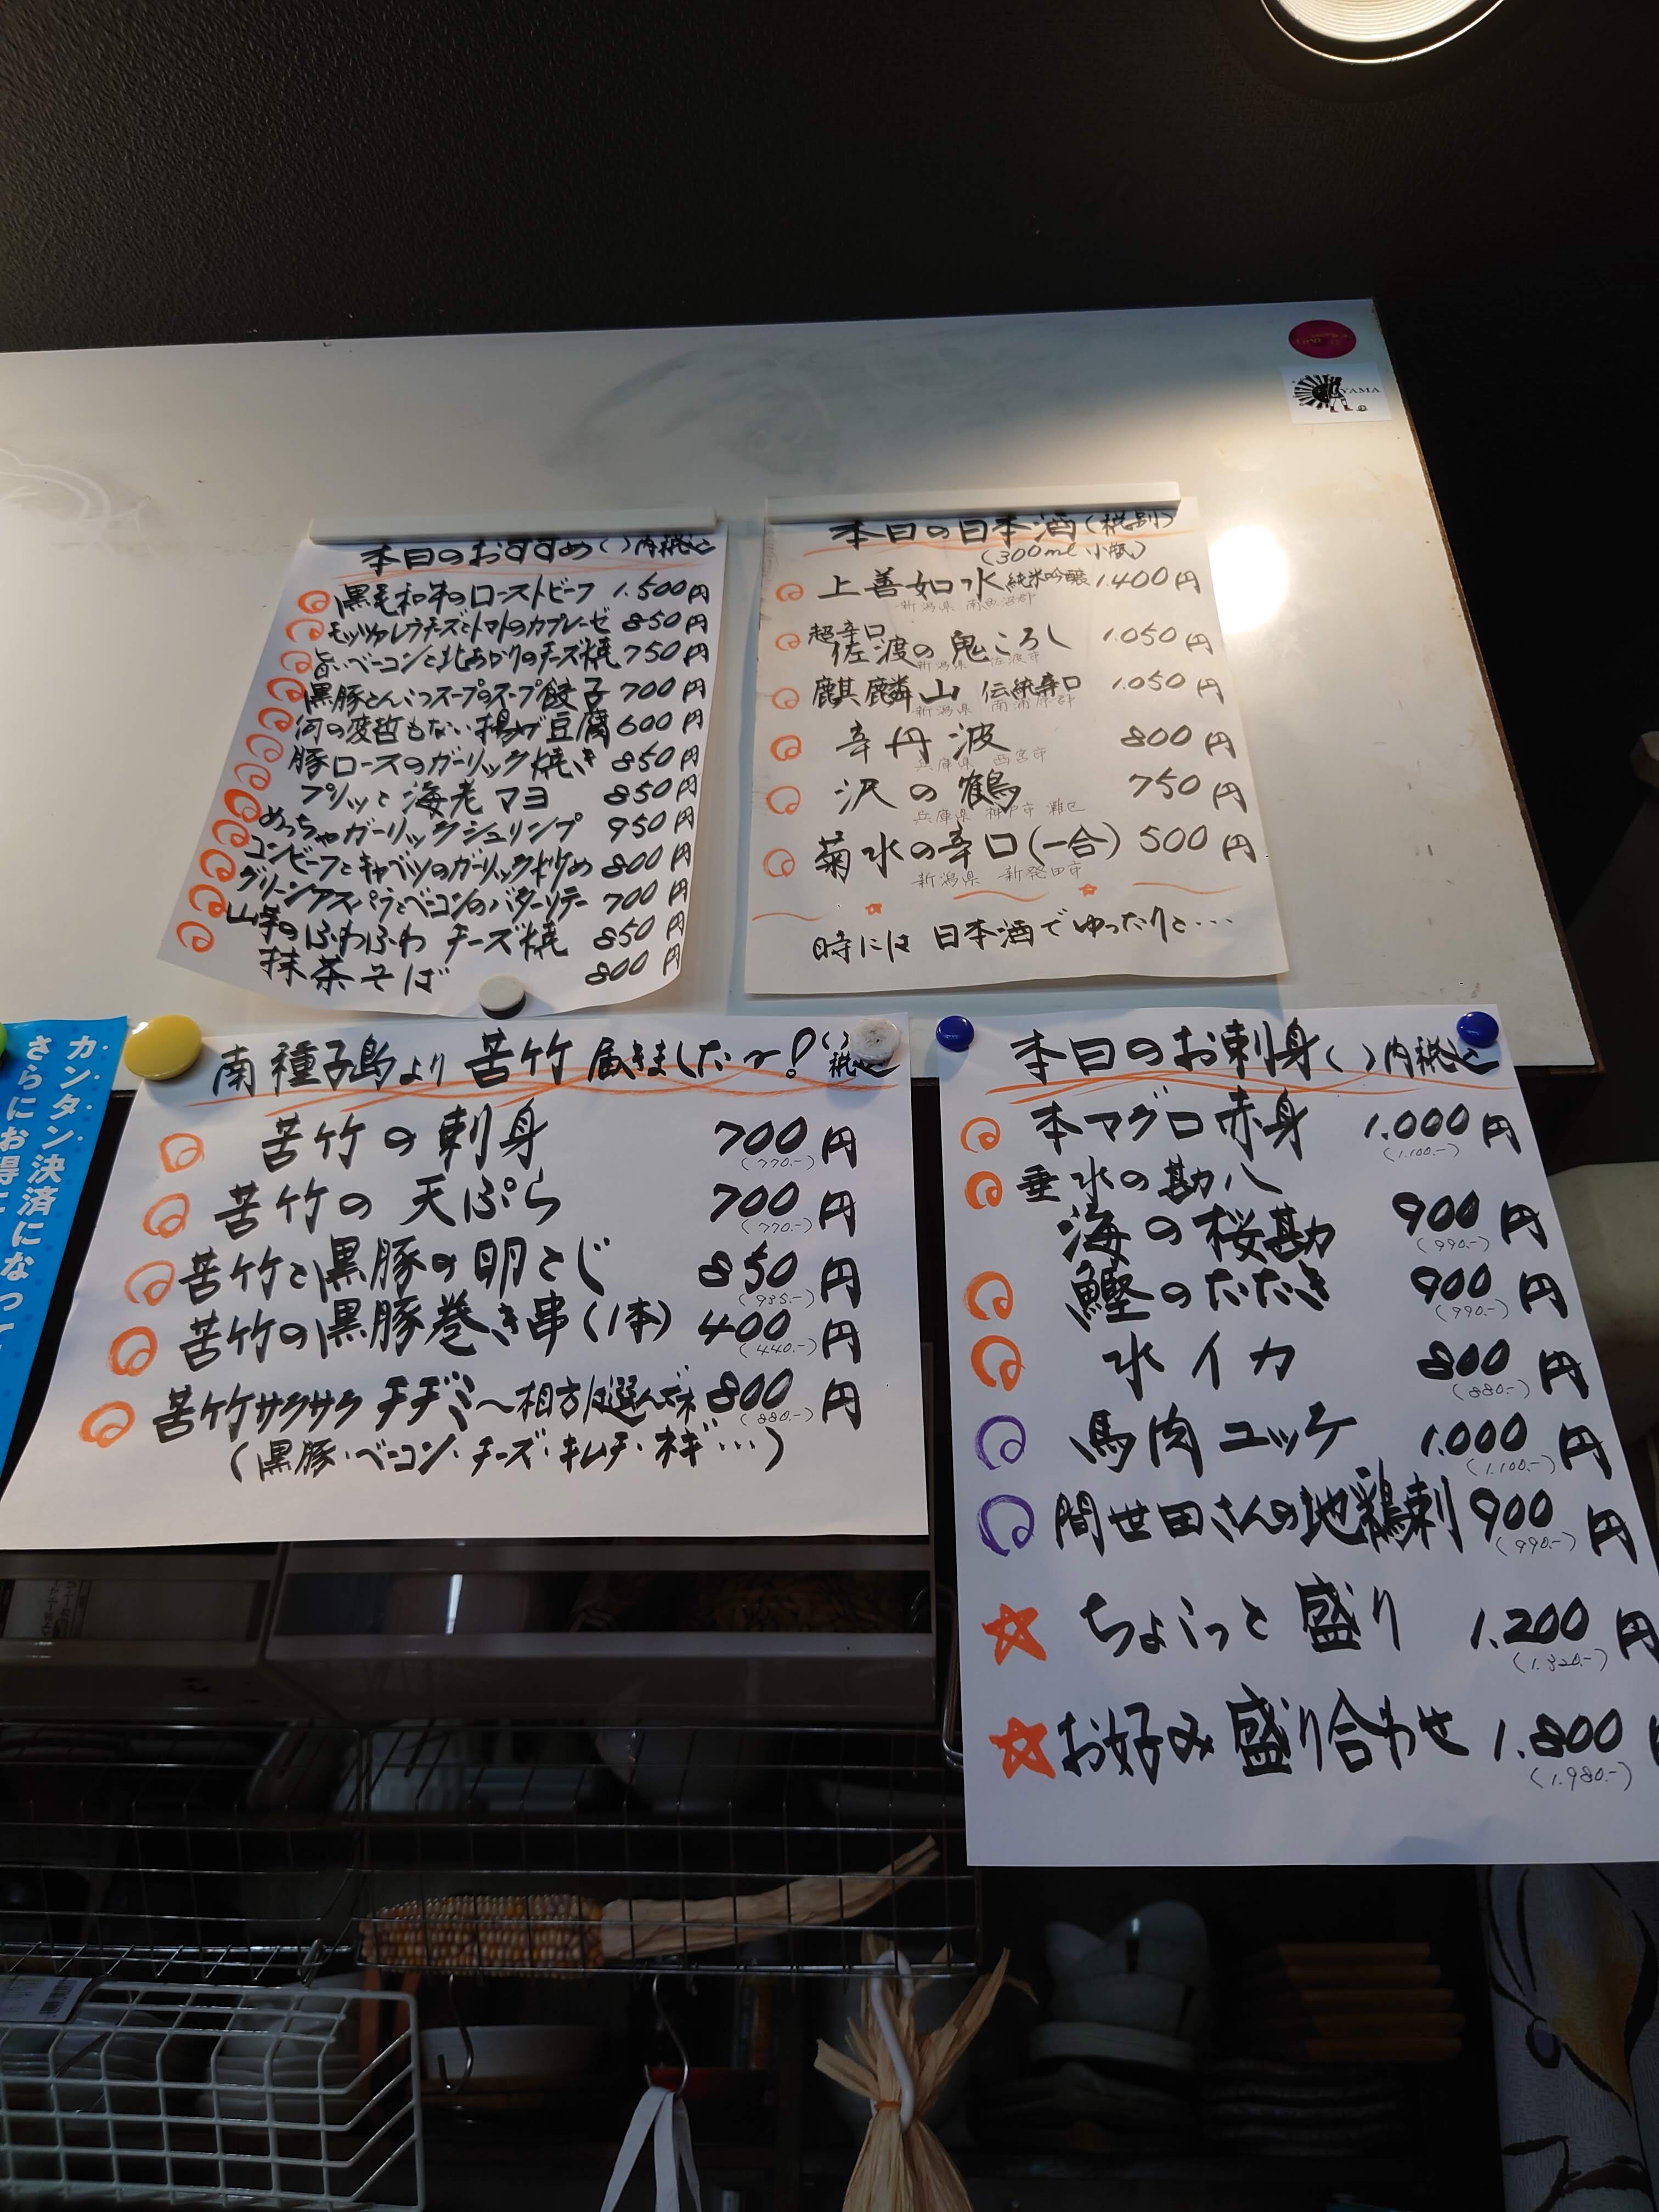 YAMA
本日のおすすめ()内税込
黒毛和牛のローストビーフ 1.500円
モッツァレラチーズとトマトのカプレーゼ 850円
旨いベーコンと北あかりのチーズ焼 750円
黒豚とんこつスープのスープ餃子 700円
何の変哲もない揚げ豆腐 600円
豚ロースのガーリック焼き 850円
プリッと海老マヨ 850円
めっちゃガーリックシュリンプ 950円
コンビーフとキャベツのガーリック炒め 800円
グリーンアスパラとベーコンのバターソテー 700円
山芋のふわふわ チーズ焼 850円
抹茶そば 800円
本日の日本酒(税別)
(300ml 小瓶)
上善如水 純米吟醸 1.400円
新潟県 南魚沼郡
超辛口
佐渡の鬼ころし 1.050円
新潟県 佐渡市
麒麟山 伝統辛口 1.050円
新潟県 南蒲原郡
辛丹波 800円
兵庫県 西宮市
沢の鶴 750円
兵庫県 神戸市 灘区
菊水の辛口(一合) 500円
新潟県 新発田市
時には 日本酒でゆったりと・・・
カンタン決済になって
さらにお得に
南種子島より 苦竹 届きました〜! ()税込
苦竹の刺身 700円
(770.-)
苦竹の 天ぷら 700円
(770.-)
苦竹と黒豚の卵とじ 850円
(935.-)
苦竹の黒豚巻き串(1本) 400円
(440.-)
苦竹サクサク チヂミ〜相方は選んでネ 800円
(880.-)
(黒豚・ベーコン・チーズ・キムチ・ネギ・・・)
本日のお刺身()内税込
本マグロ赤身 1.000円
(1.100.-)
垂水の勘八
海の桜勘 900円
(990.-)
鰹のたたき 900円
(990.-)
水イカ 800円
(880.-)
馬肉ユッケ 1.000円
(1.100.-)
間世田さんの地鶏刺 900円
(990.-)
ちょこっと盛り 1.200円
(1.320.-)
お好み盛り合わせ 1.800
(1.980.-)